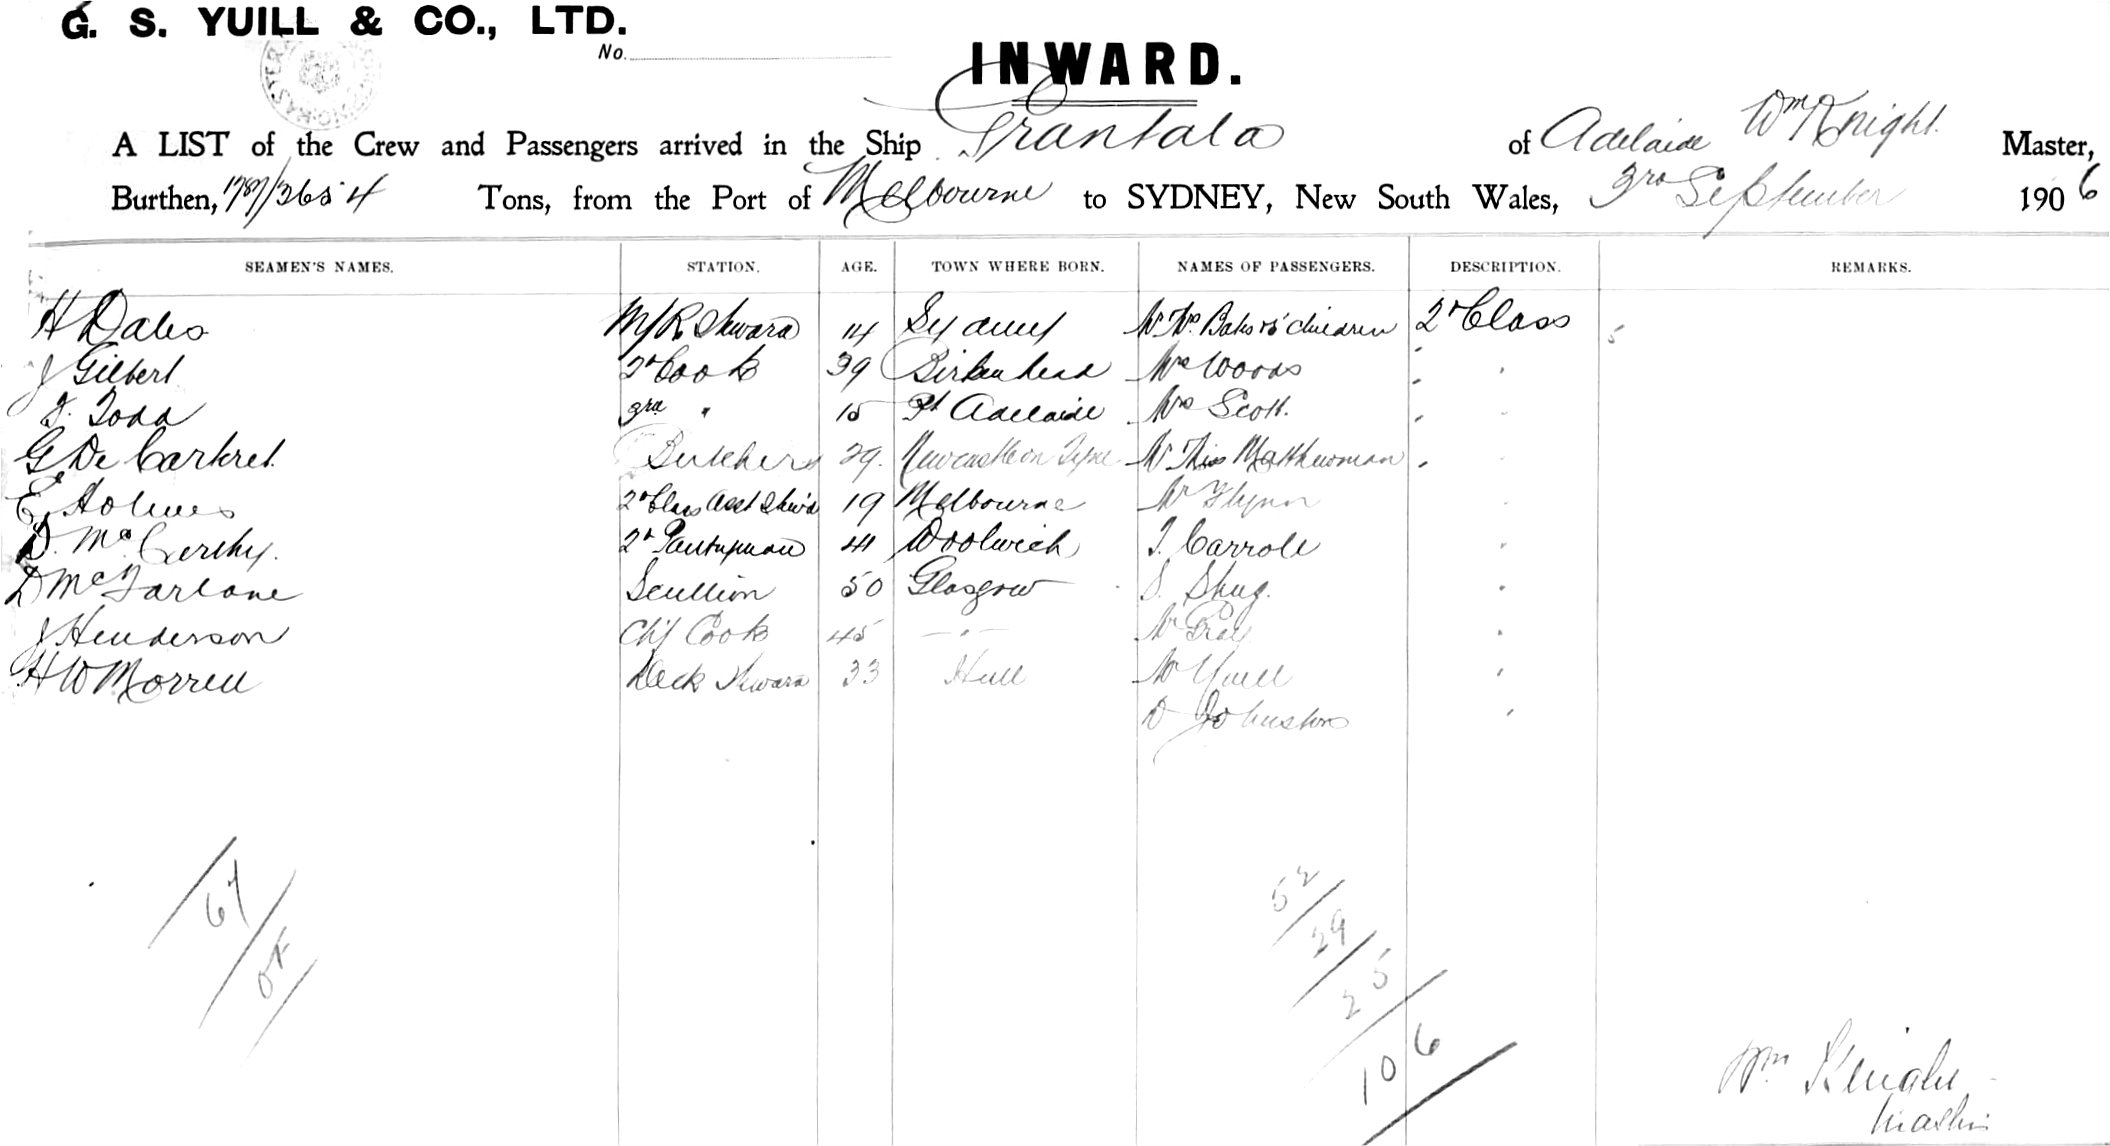 G. S. YUILL & CO., LTD.
No.
INWARD.
A LIST of the Crew and Passengers arrived in the Ship Grantala of Adelaide Wm Knight Master,
Burthen, Tons, from the Port of Melbourne to SYDNEY, New South Wales, 3rd September 1906
SEAMEN'S NAMES. STATION. AGE. TOWN WHERE BORN. NAMES OF PASSENGERS. DESCRIPTION. REMARKS.
H Dales M/R Steward 14 Sydney Mr Mrs children 2d Class 5
J Gilbert 2d Cook 39 Birkenhead Mrs Woods "
F. Todd 3rd " 15 Pt Adelaide Mrs Scott. "
G De Carteret Butcher 29. Newcastle on Tyne Mr Matthewman "
E Holmes 2d Class Asst Stew'd 19 Melbourne Mr Flynn "
D. McCarthy. 2d Pantryman 41 Woolwich T. Carroll "
D McFarlane Scullion 50 Glasgow S. Shug. "
J Henderson Chf Cook 45 — " — Mr Gray "
H W Morrell Deck Steward 33 Hull Mr Yuill "
D Johnston "
67
OK
52
29
25
106
Wm Knight
Master